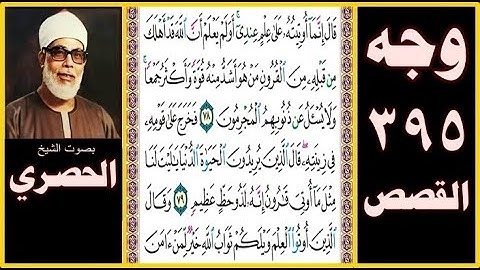 وجه
٣٩٥
القصص
قَالَ إِنَّمَآ أُوتِيتُهُۥ عَلَىٰ عِلْمٍ عِندِىٓ ۚ أَوَلَمْ يَعْلَمْ أَنَّ ٱللَّهَ قَدْ أَهْلَكَ
مِن قَبْلِهِۦ مِنَ ٱلْقُرُونِ مَنْ هُوَ أَشَدُّ مِنْهُ قُوَّةً وَأَكْثَرُ جَمْعًا ۚ
وَلَا يُسْـَٔلُ عَن ذُنُوبِهِمُ ٱلْمُجْرِمُونَ ٧٨ فَخَرَجَ عَلَىٰ قَوْمِهِۦ
فِى زِينَتِهِۦ ۖ قَالَ ٱلَّذِينَ يُرِيدُونَ ٱلْحَيَوٰةَ ٱلدُّنْيَا يَـٰلَيْتَ لَنَا
مِثْلَ مَآ أُوتِىَ قَـٰرُونُ إِنَّهُۥ لَذُو حَظٍّ عَظِيمٍ ٧٩ وَقَالَ
ٱلَّذِينَ أُوتُوا۟ ٱلْعِلْمَ وَيْلَكُمْ ثَوَابُ ٱللَّهِ خَيْرٌ لِّمَنْ ءَامَنَ
بصوت الشيخ
الحصري